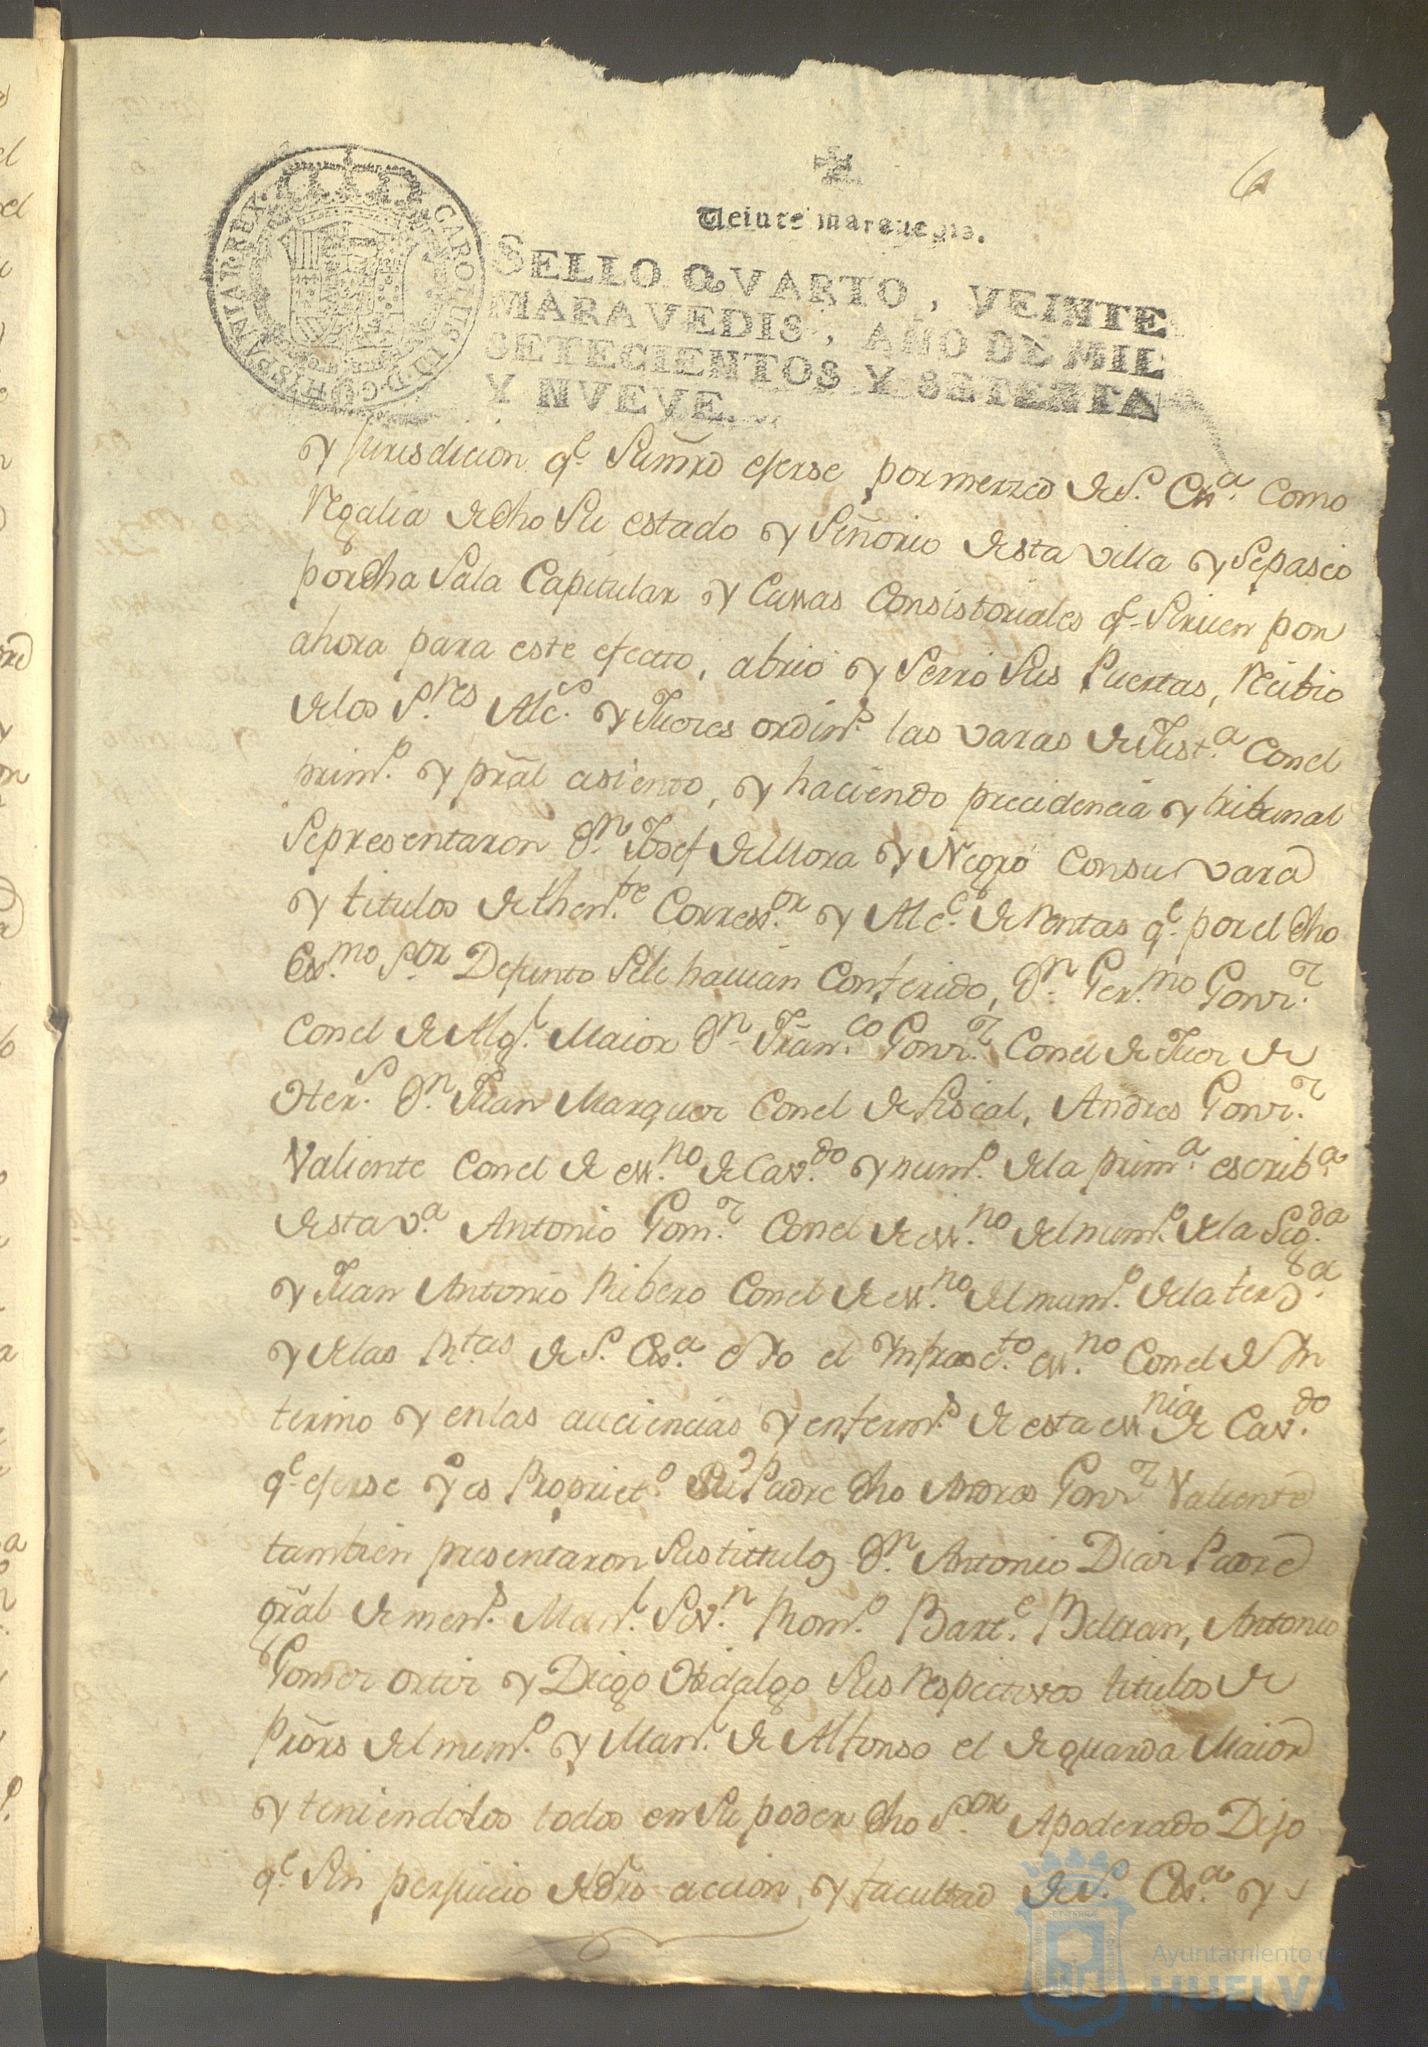 6
Veinte maravedis.
SELLO QVARTO, VEINTE
MARAVEDIS, AÑO DE MIL
SETECIENTOS Y SETENTA
Y NVEVE.
CAROLUS III D.G. HISPANIAR. REX
y Jurisdicion q.e Sumrd eferse por merzed de S. Ex.a Como
Regalia dedho Su estado y Señorio desta villa y Sepaseo
pordha Sala Capitular y Cassas Consistoriales q.e Siruen por
ahora para este efecto, abrio y Serro Sus Puertas, Recibio
delos S.res Alc.s y Jueces ordin.s las varas de Just.a Conel
prim.o y pral asiento, y haciendo precidencia y tribunal
Sepresentaron D.n Josef de Mora y Negro Consu vara
y titulos de then.te Correx.or y Alc.e de Rentas q.e por el dho
Ex.mo S.or Defunto Sele hauian Conferido, D.n Ger.mo Gonz.z
Conel de Alg.l Maior D.n Fran.co Gonz.z Conel de Juez de
Hер.s D.n Juan Marquez Conel de Fiscal, Andres Gonz.z
Valiente Conel de ess.no de Cav.do y num.o dela prim.a escrib.a
desta v.a Antonio Gom.z Conel de ess.no del num.o dela Seg.da
y Juan Antonio Ribero Conel de ess.no del num.o dela ter.ra
y delas Rtas de S. Ex.a e Yo el Ynfrasc.to ess.no Conel de In
terino y enlas auciencias y enferm.s de esta ess.nia de Cav.do
q.e eferse y es Propriet.o Su Padre dho Andres Gonz.z Valiente
tambien presentaron Sus titulos D.n Antonio Diaz Padre
gral de men.s Man.l Sev.n Rom.o Bart.e Beltran, Antonio
Gomez ortiz y Diego Hidalgo Sus respectivos titulos de
Prors del num.o y Man.l de Alfonso el de guarda Maior
y teniendolos todos en Su poder dho S.or Apoderado Dijo
q.e Sin perjuicio del dro accion, y facultad de S. Ex.a y
Ayuntamiento de
HUELVA